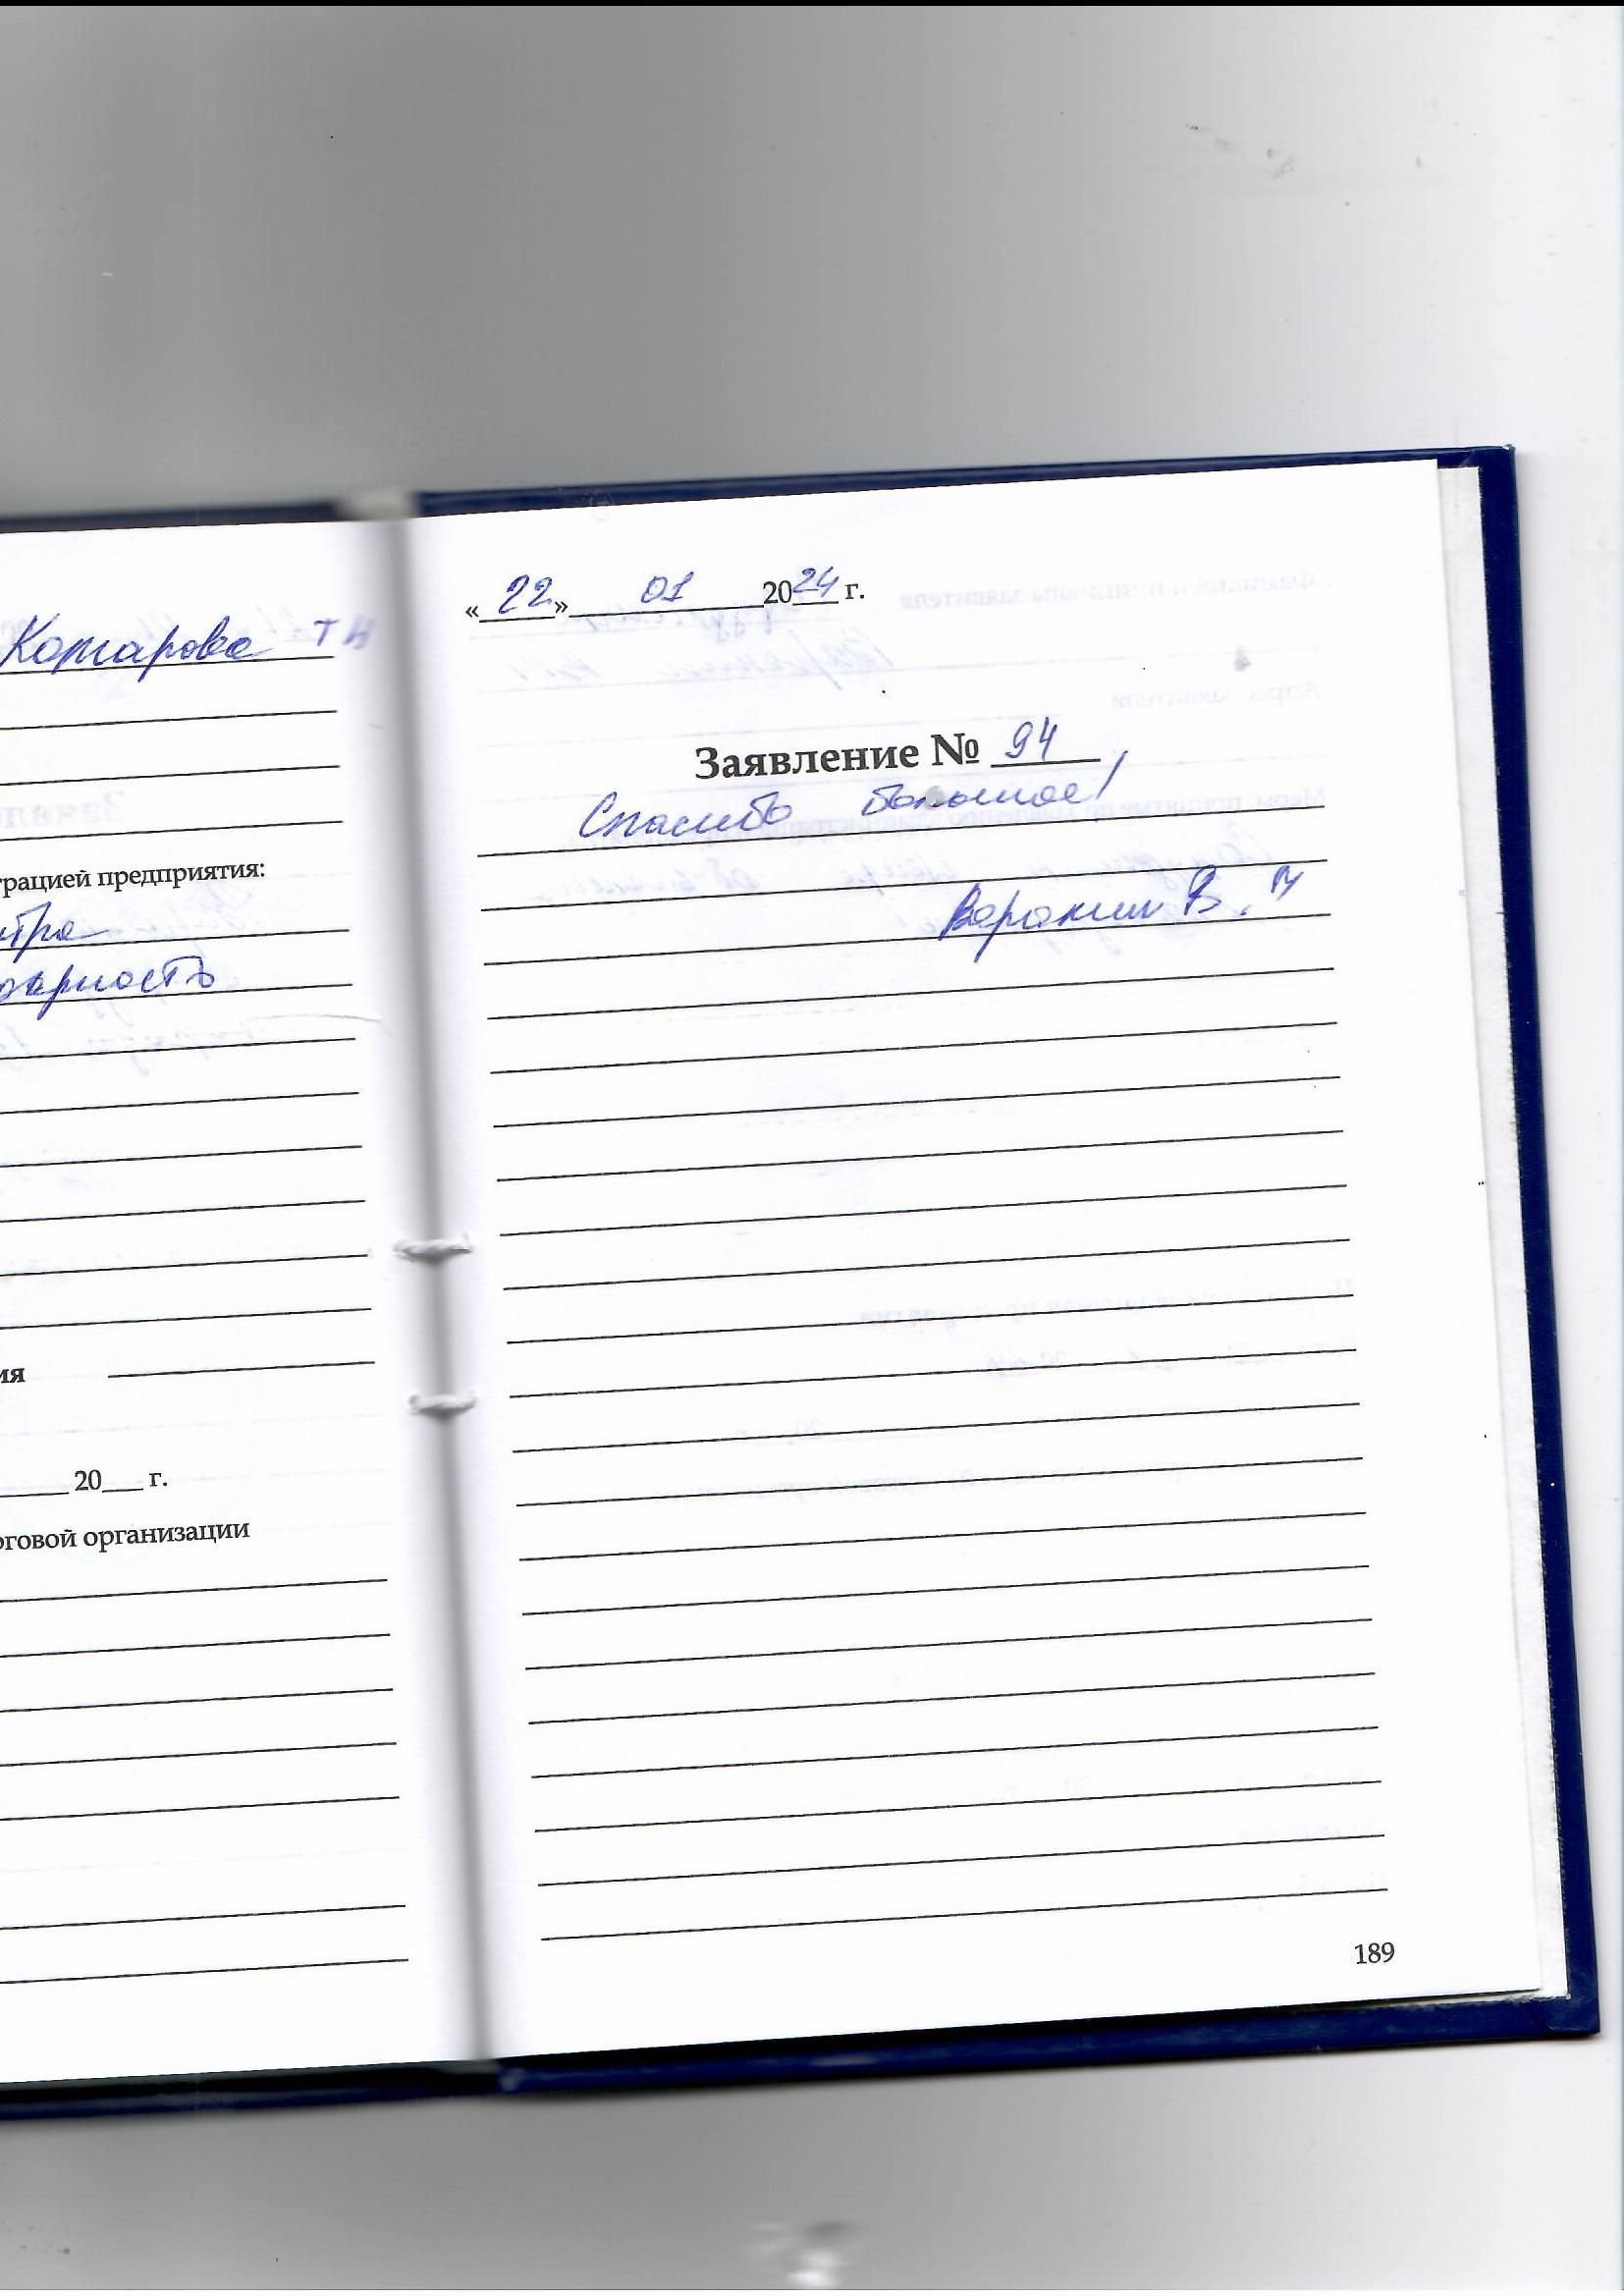 Комарова Т Н
трацией предприятия:
нтра
дарность
ия
20 г.
рговой организации
«22» 01 2024 г.
Заявление № 94
Спасибо большое!
Воронин В. И
189